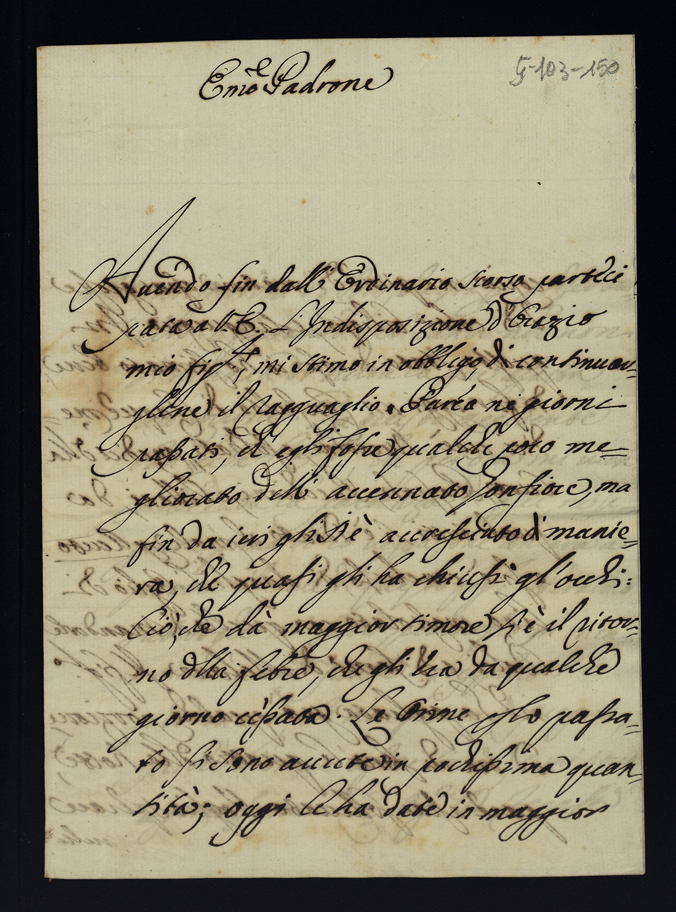 Em̃o e Padrone
G-103-150
Auendo fin dall' Ordinario scorso parteci
pata a V.E. L'Indisposizione d'Orazio
mio figlio, mi stimo in obbligo di continuar-
gliene il ragguaglio. Parea ne giorni
passati, ch' egli fosse qualche poco me=
gliorato dell' accennato Gonfiore, ma
fin da ieri gli si è accresciuto di manie=
ra, che quasi gli ha chiusi gl'occhi:
Ciò, che dà maggior timore, si è il ritor-
no della febre, che gli era da qualche
giorno cessata. Le Orine p lo passa-
to si sono auute in pochissima quan-
tità; oggi le ha date in maggior